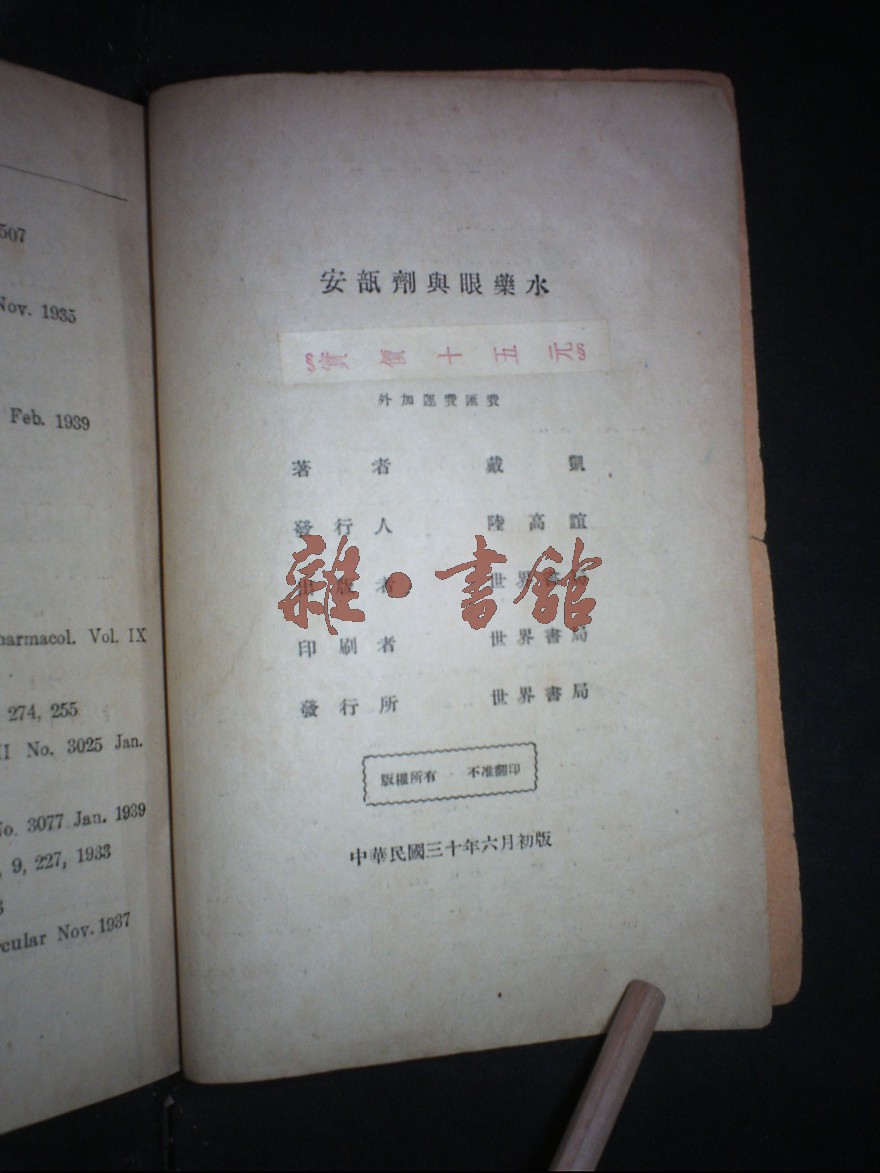 507
Nov. 1935
Feb. 1939
harmacol. Vol. IX
274, 255
II No. 3025 Jan.
No. 3077 Jan. 1939
, 9, 227, 1933
3
rcular Nov. 1937
安瓿劑與眼藥水
§實價十五元§
外加運費匯費
著者 戴凱
發行人 陸高誼
出版者 世界書局
雜·書館
印刷者 世界書局
發行所 世界書局
版權所有 不准翻印
中華民國三十年六月初版